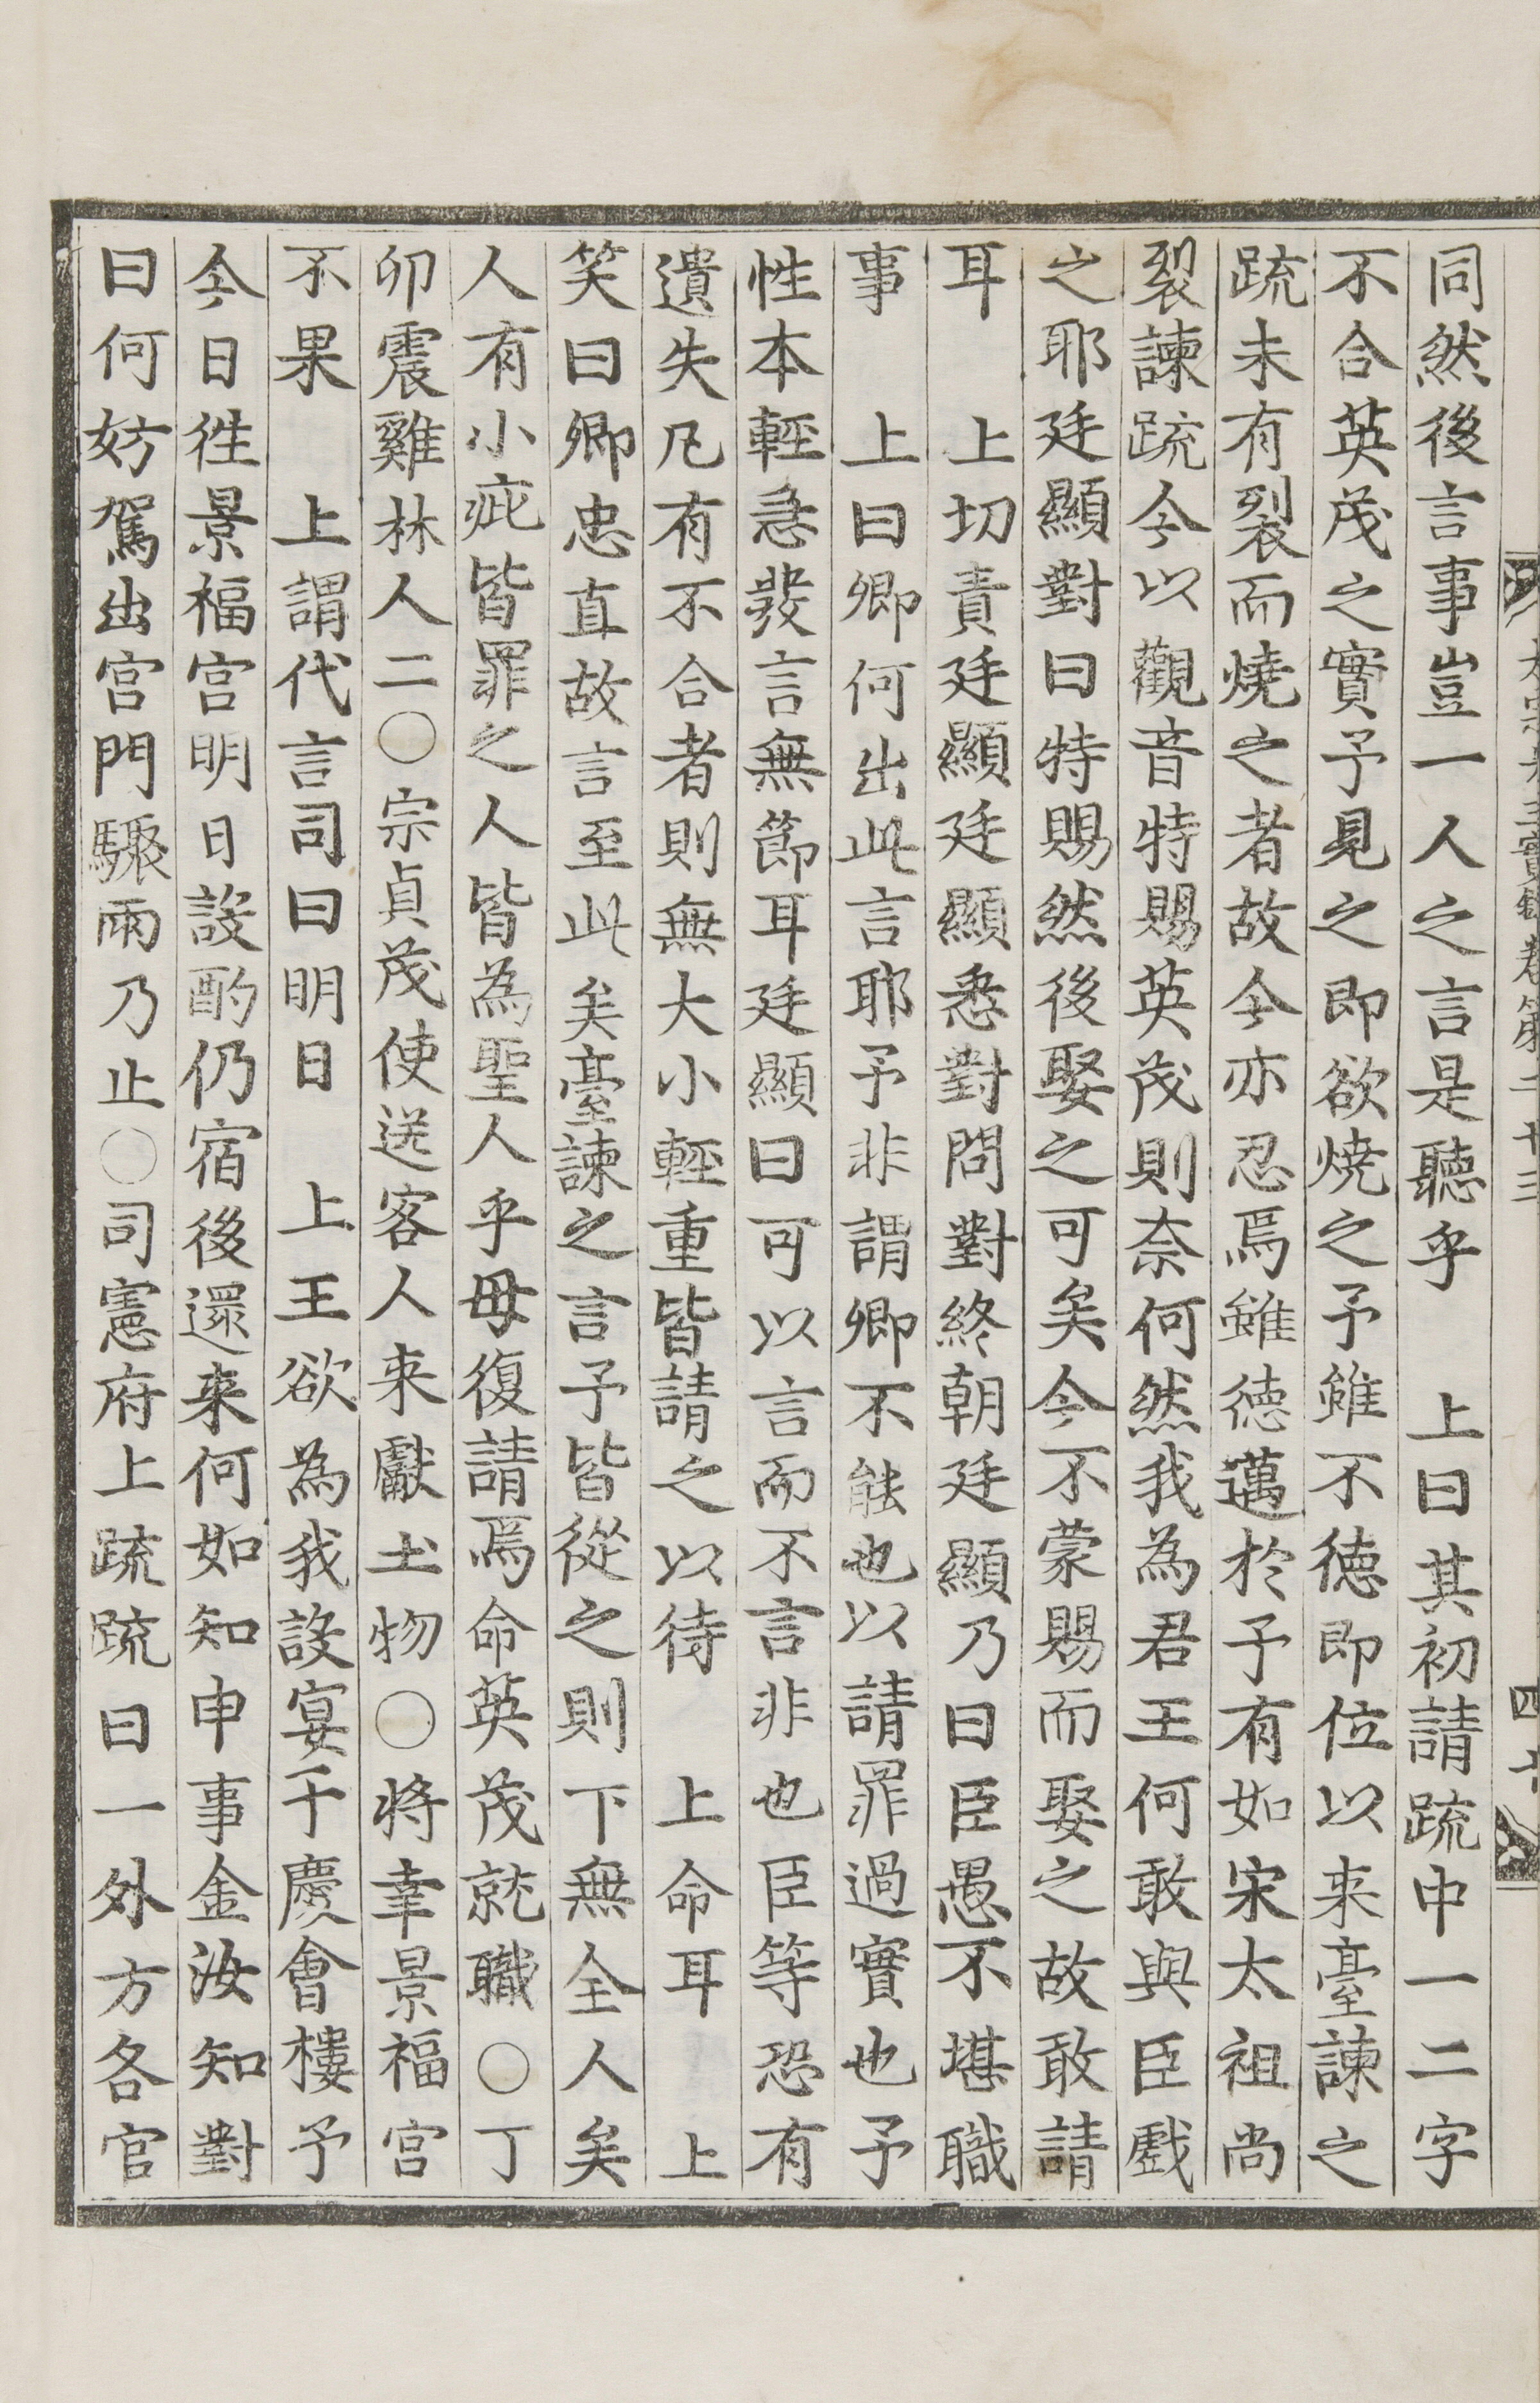 同然後言事豈一人之言是聽乎　上曰其初請疏中一二字
不合英茂之實予見之即欲燒之予雖不德即位以来臺諫之
疏未有裂而燒之者故今亦忍焉雖德邁於予有如宋太祖尚
裂諫疏今以觀音特賜英茂則奈何然我為君王何敢與臣戲
之耶廷顯對曰特賜然後娶之可矣今不蒙賜而娶之故敢請
耳　上切責廷顯廷顯悉對問對終朝廷顯乃曰臣愚不堪職
事　上曰卿何出此言耶予非謂卿不能也以請罪過實也予
性本輕急發言無節耳廷顯曰可以言而不言非也臣等恐有
遺失凡有不合者則無大小輕重皆請之以待　上命耳　上
笑曰卿忠直故言至此矣臺諫之言予皆從之則下無全人矣
人有小疵皆罪之人人皆為聖人乎毋復請焉命英茂就職○丁
卯震雞林人二○宗貞茂使送客人来獻土物○將幸景福宮
不果　上謂代言司曰明日　上王欲為我設宴于慶會樓予
今日徃景福宮明日設酌仍宿後還来何如知申事金汝知對
曰何妨駕出宮門驟雨乃止○司憲府上疏疏曰一外方各官